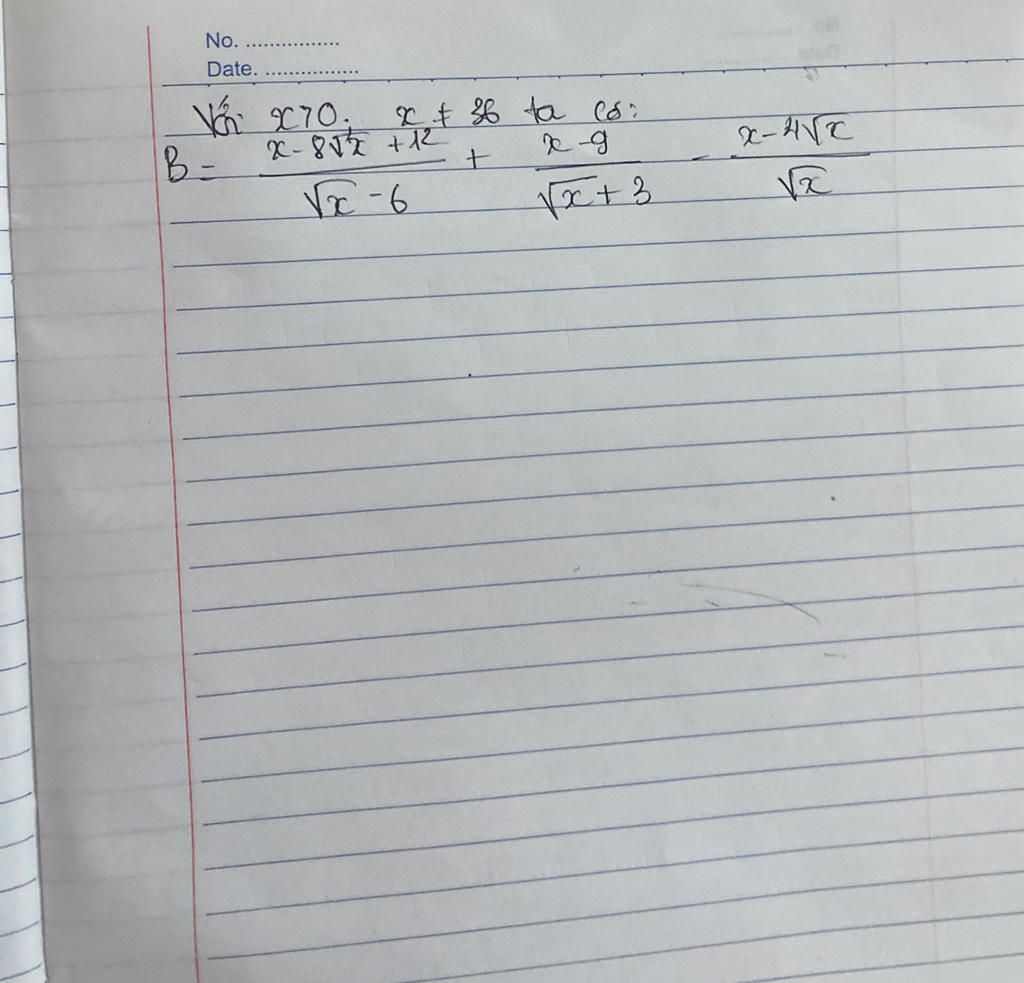 No. ................
Date. ................
Với x>0; x ≠ 36 ta có:
B = (x - 8√x + 12)/(√x - 6) + (x - 9)/(√x + 3) - (x - 4√x)/√x